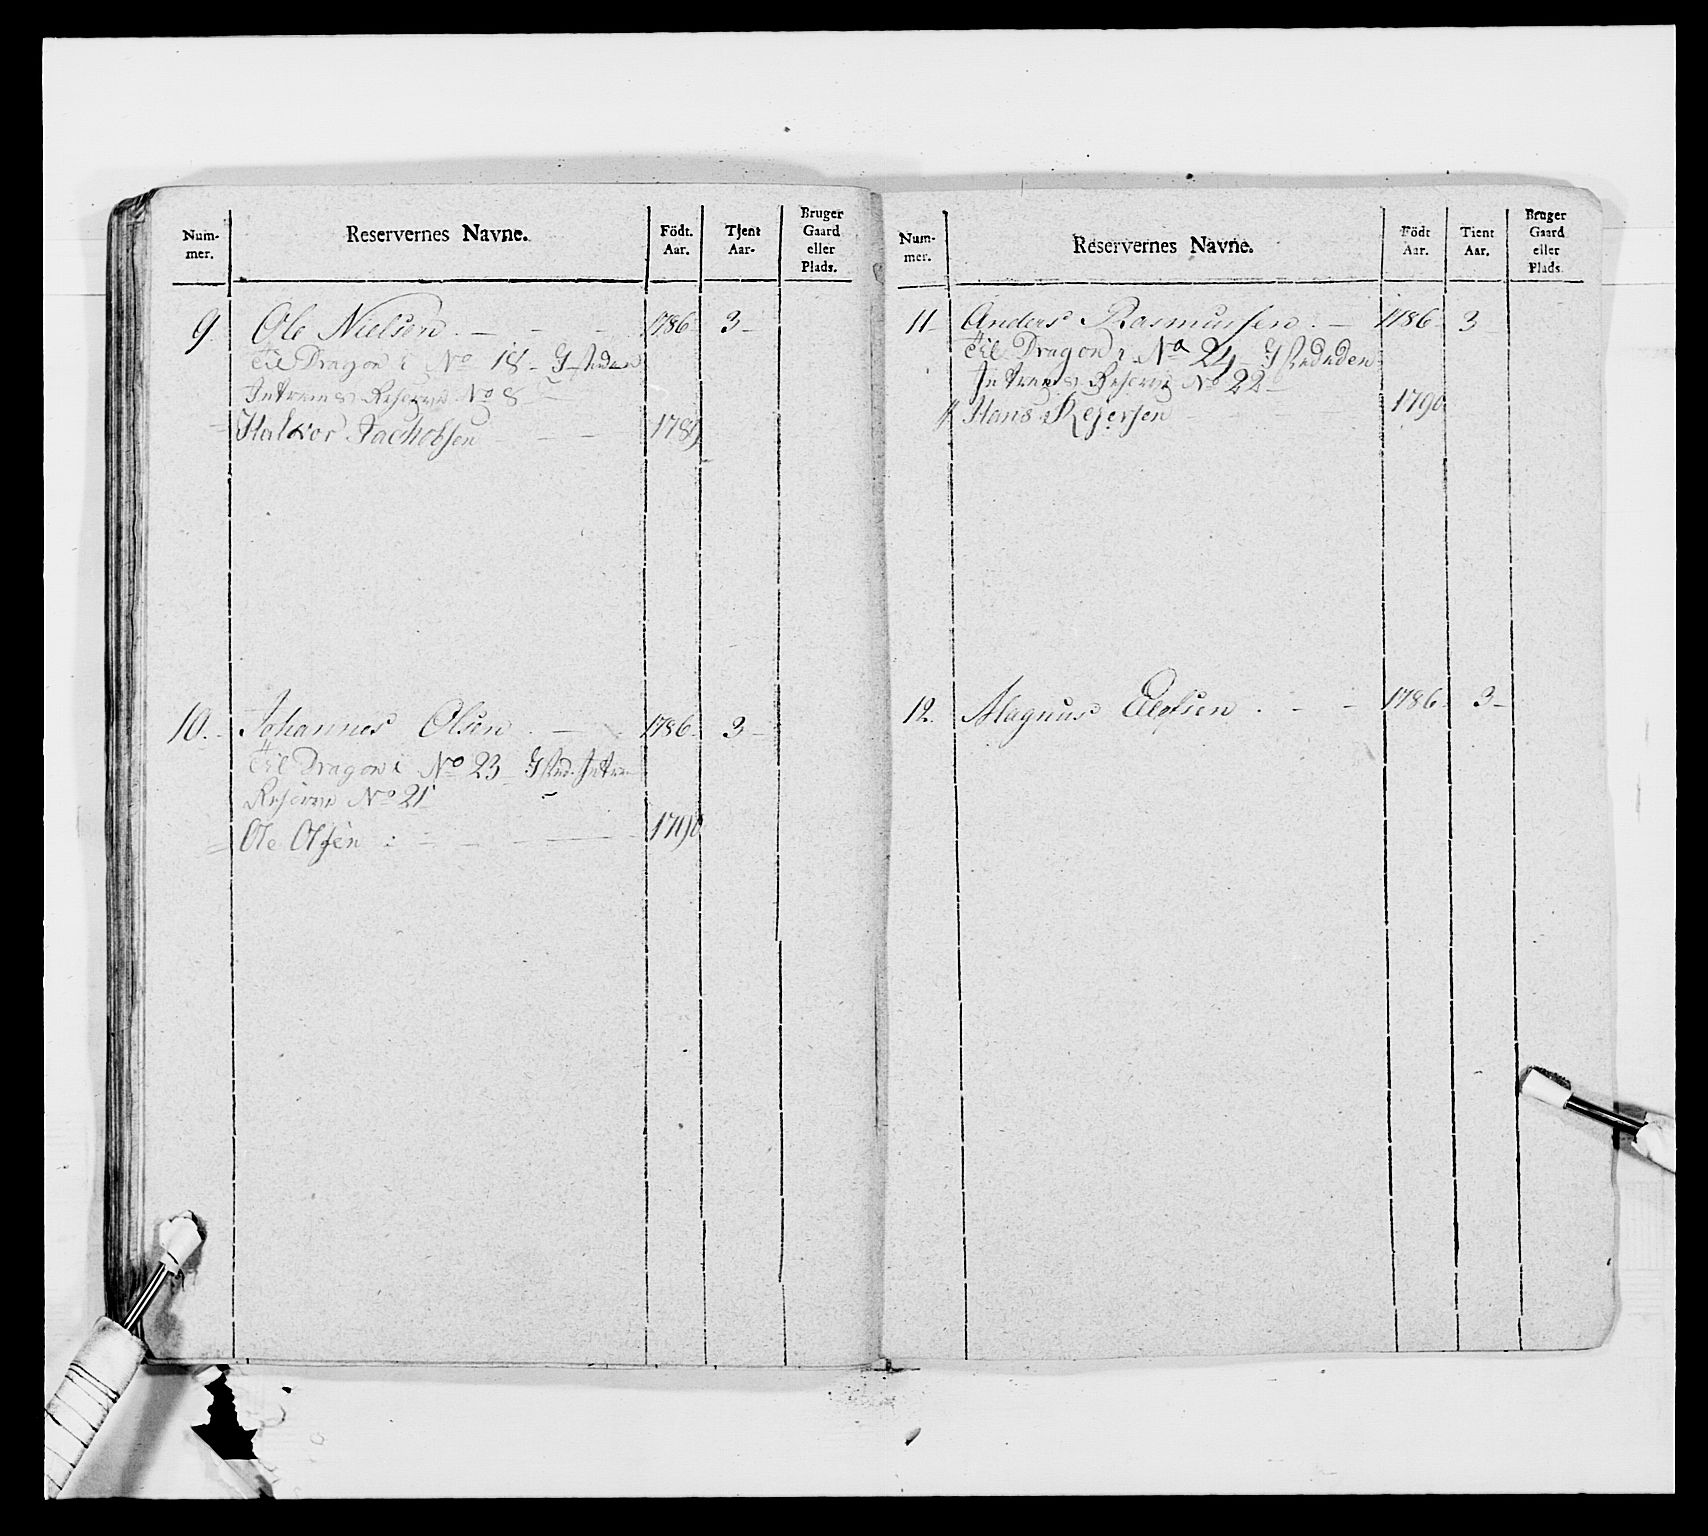 Num-
mer.
Reservernes Navne.
Födt.
Aar.
Tjent
Aar-
Bruger
Gaard
eller
Plads.
9. Ole Nielsen. 1786 3-
Til Dragon i No 18-
Reserve No 8
Halvor Jachobsen 1789
10. Johannes Olsen. 1786. 3-
Til Dragon i No 23
Reserve No 21
Ole Olsen: 1790
Num-
mer.
Reservernes Navne.
Födt
Aar.
Tient
Aar.
Bruger
Gaard
eller
Plads.
11- Anders Rasmussen. 1786- 3-
Til Dragon i No 24
Reserve No 22-
Hans 1790
12. Magnus 1786. 3-